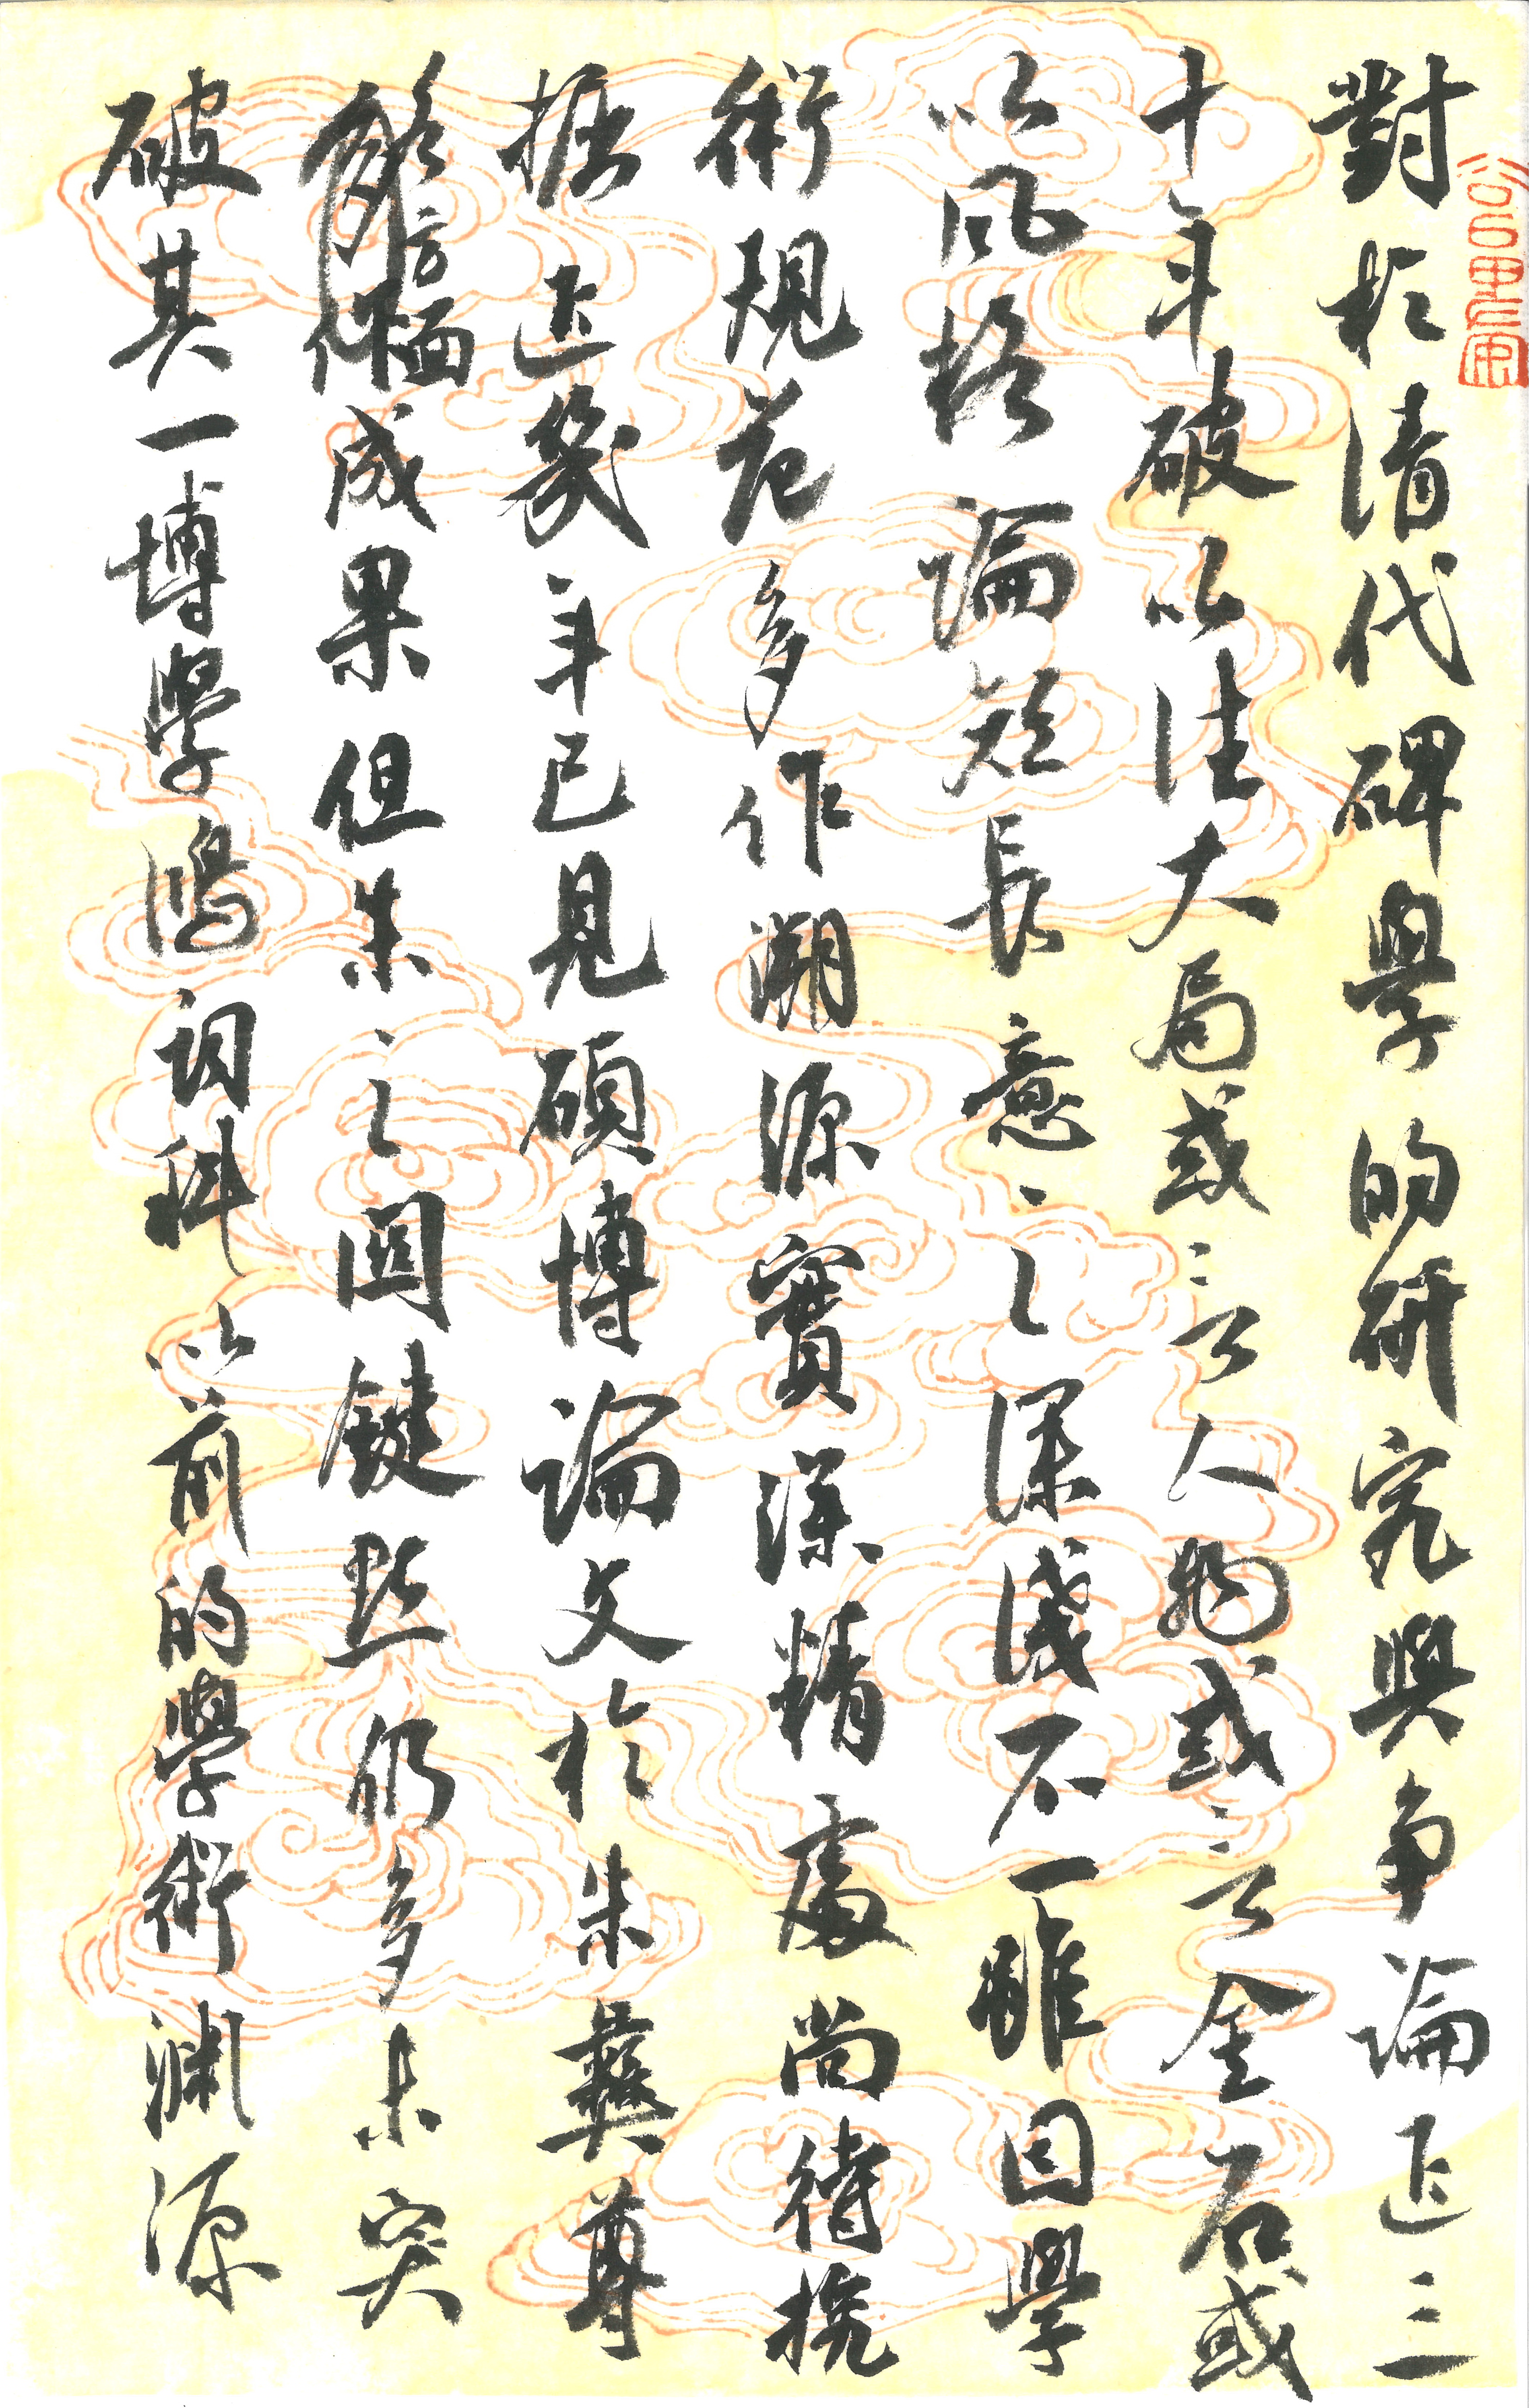 對於清代碑學的研究與争論近三
十年破以往大局或云人物或云金石或
以風格論短長意之深淺不一雖因學
術規范多作溯源實深精處尚待挖
掘近幾年已見碩博論文於朱彝尊
方面成果但朱之關鍵點仍多未突
破其一博學鴻詞科以前的學術淵源